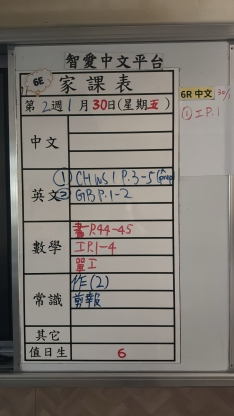 智愛中文平台
6E
家課表
第2週1月30日(星期五)
中文
英文
① CH WS 1 P.3-5 (
② GB P.1-2
數學
書 P.44-45
工 P.1-4
單工
常識
作(2)
剪報
其它
值日生
6
6R 中文 30/
① 工 P.1